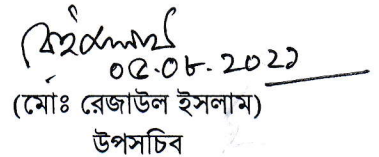 ০৫.০৮.2021
(মোঃ রেজাউল ইসলাম)
উপসচিব